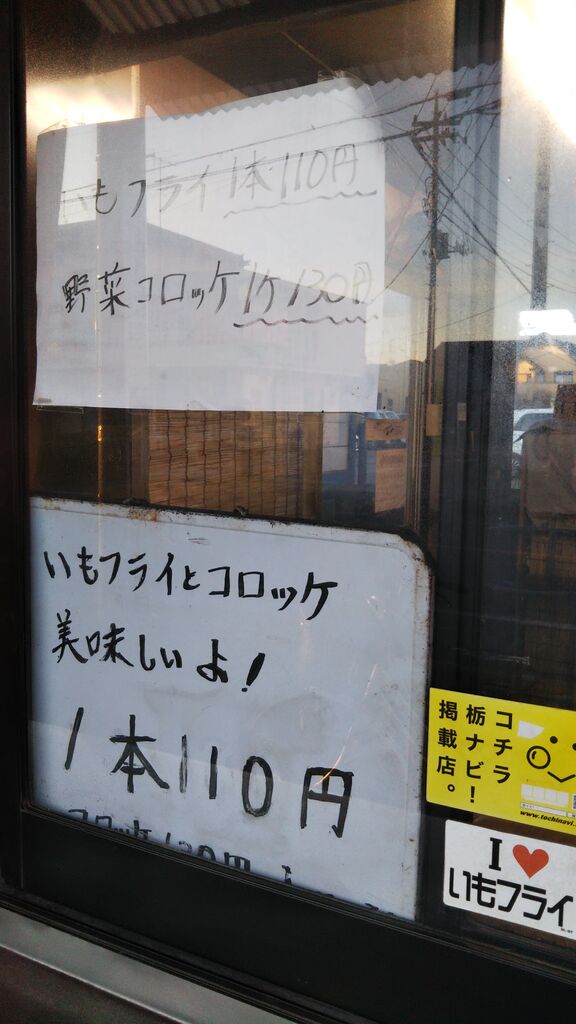 いもフライ1本110円
野菜コロッケ1ケ130円
いもフライとコロッケ
美味しいよ!
1本110円
コロッケ130円
コチラ
栃ナビ!
掲載店。
www.tochinavi.
I ♥
いもフライ